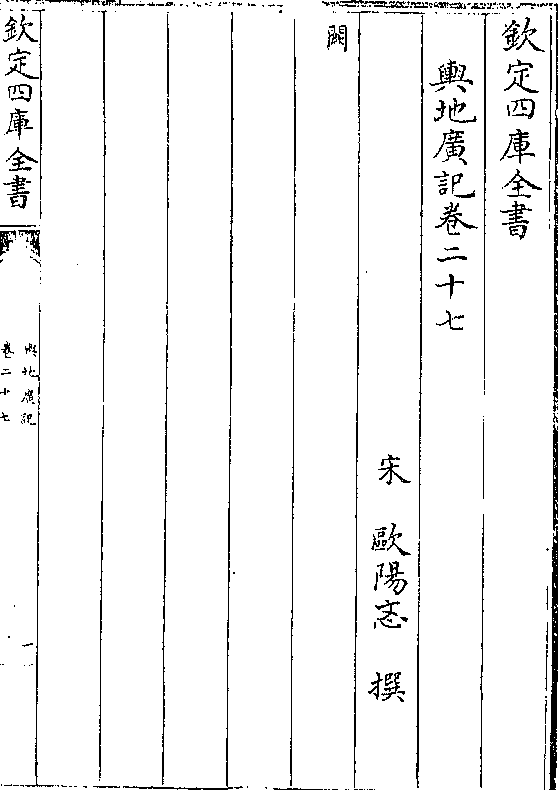 欽定四庫全書
輿地廣記卷二十七
宋 歐陽忞 撰
闕
欽定四庫全書
輿地廣記
卷二十七
一